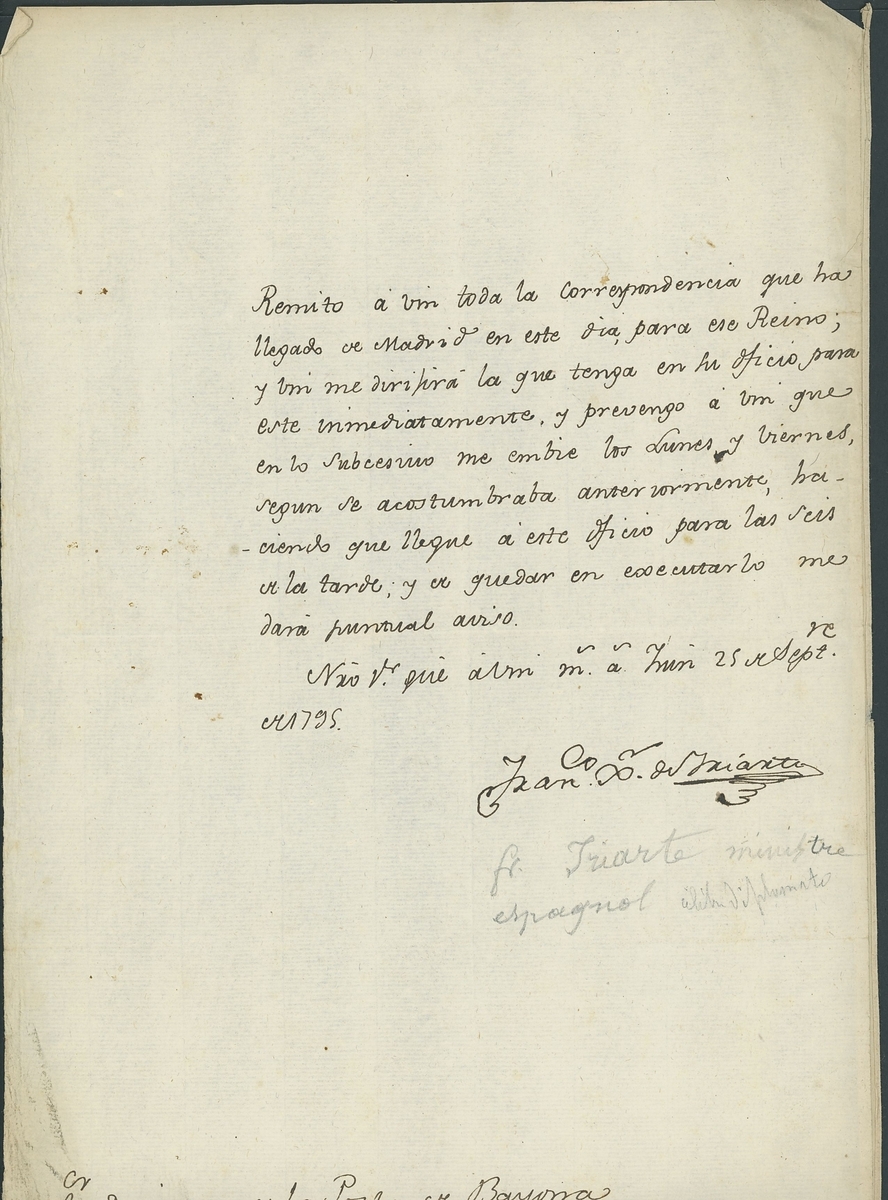 Remito à vm toda la Correspondencia que ha
llegado de Madrid en este dia, para ese Reino;
y vm me dirijirá la que tenga en su Oficio para
este inmediatamente, y prevengo à vm que
en lo Subcesivo me embie los Lunes, y Viernes,
segun se acostumbraba anteriormente, ha-
-ciendo que llegue à este Oficio para las Seis
de la tarde; y de quedar en executarlo me
dará puntual aviso.
Nrõ Sr. gũe à Vm m.s a.s Irun 25 de Sept.re
de 1795.
Fran.co X.r de Yriarte
fr. Iriarte ministre
espagnol
la Post de Bayona